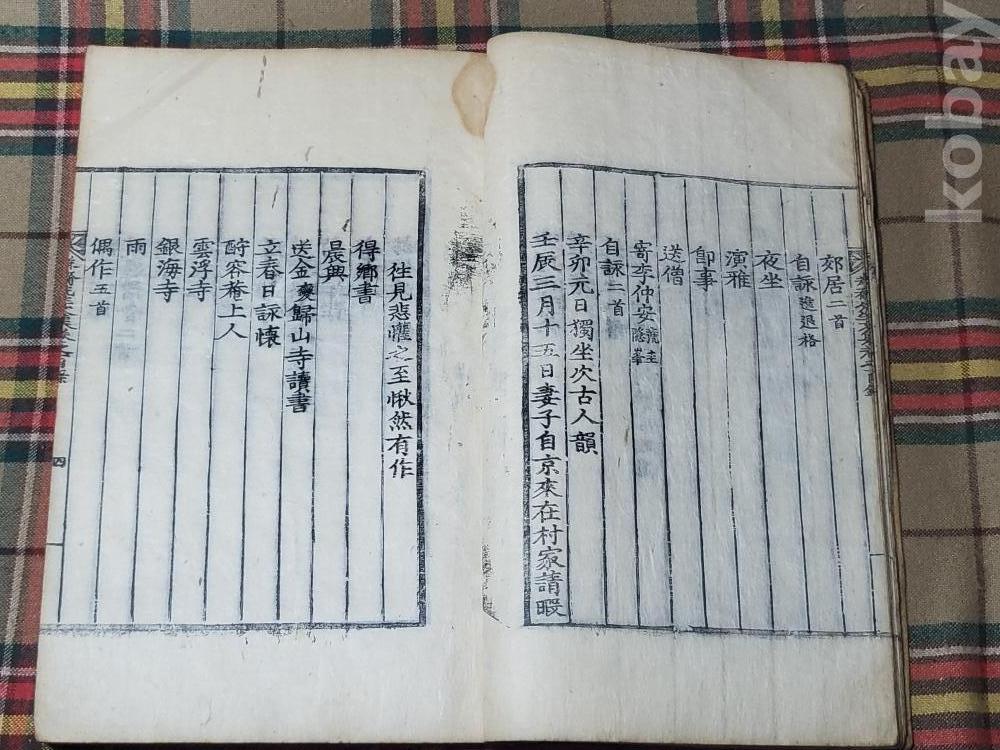 郊居二首
自詠進退格
夜坐
演雅
卽事
送僧
寄李仲安
自詠二首
辛卯元日獨坐次古人韻
壬辰三月十五日妻子自京來在村家請暇
往見悲懽之至愀然有作
得鄉書
晨興
送金叟歸山寺讀書
立春日詠懷
酧容菴上人
雲浮寺
銀海寺
雨
偶作五首
四
kobay